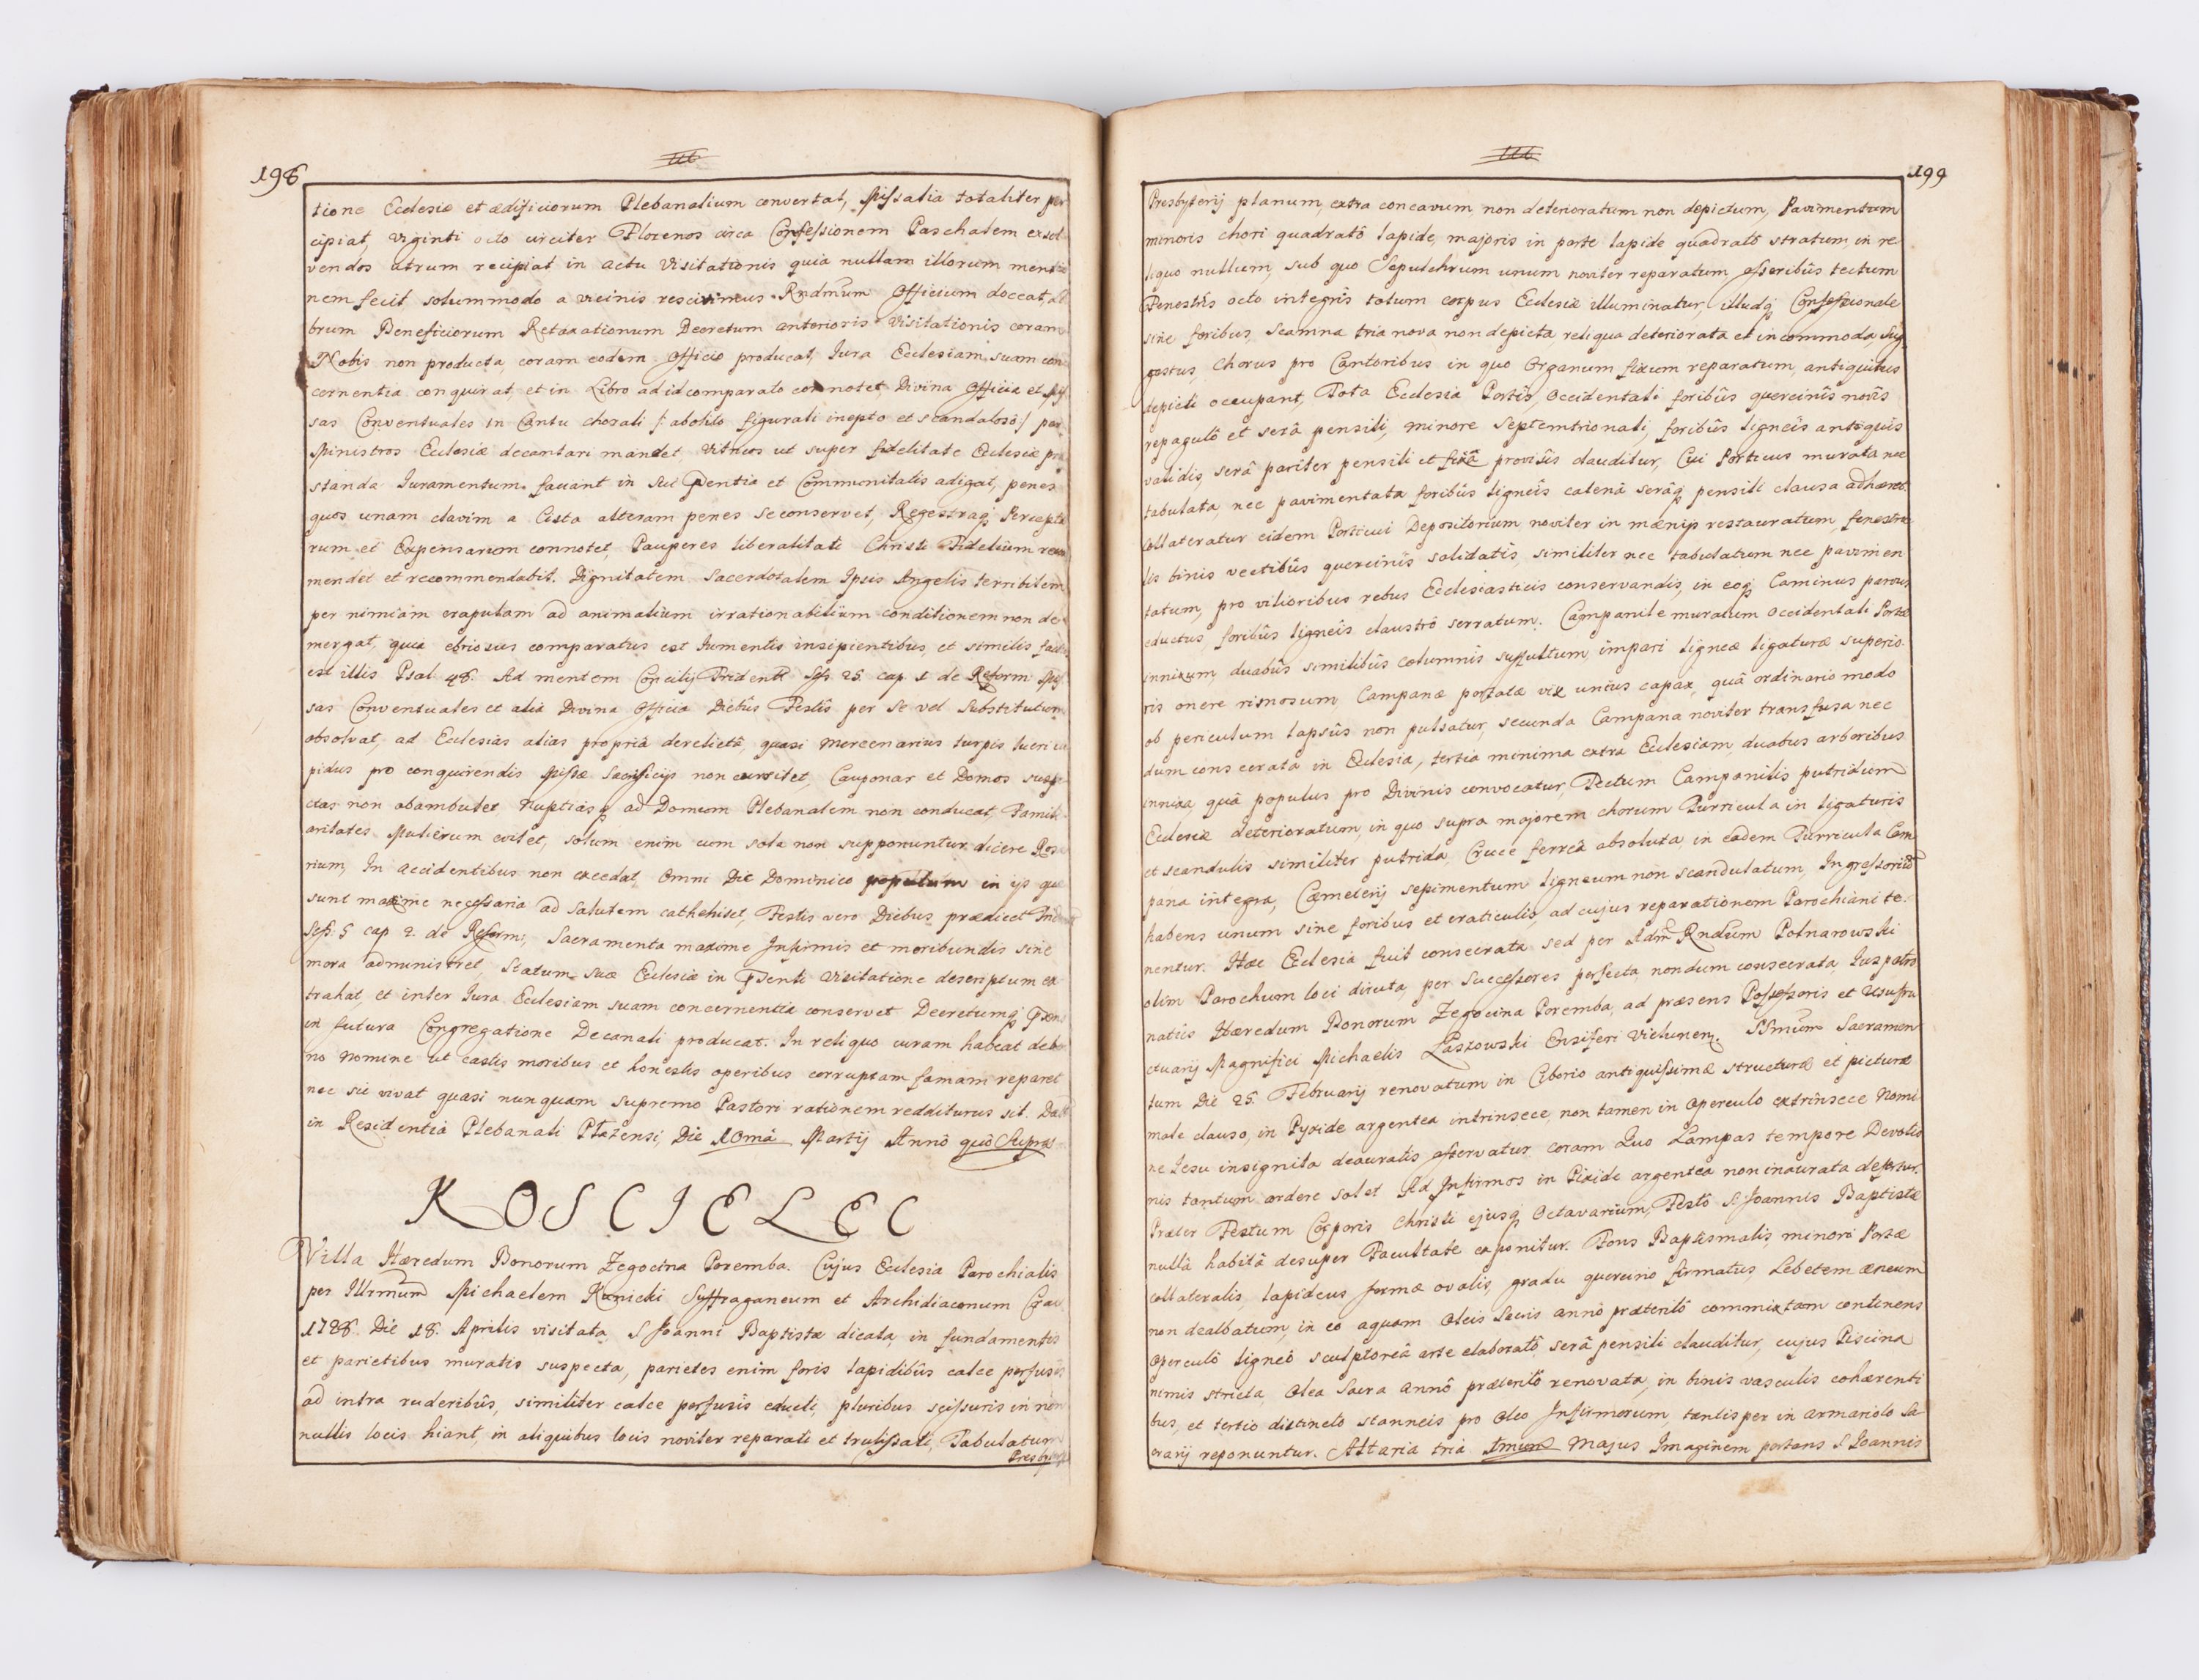 198
tione Ecclesiæ et ædificiorum Plebanalium convertat, Missalia totaliter per
cipiat, viginti octo circiter Florenos circa Confessionem Paschalem exsol
vendos utrum recipiat in actu Visitationis quia nullam illorum mentio
nem fecit solummodo a vicinis rescivimus Rndmum Officium doceat, li
brum Beneficiorum Retaxationum Decretum anterioris Visitationis coram
Nobis non producta, coram eodem Officio producat, Jura Ecclesiam suam con
cernentia conquirat, et in Libro ad id comparato connotet, Divina Officia et Mis
sas Conventuales in Cantu chorali /: abolito figurali inepto et scandaloso / per
Ministros Ecclesiæ decantari mandet, Vitricos ut super fidelitate Ecclesiæ præ
standa Juramentum faciant in sui Pntia et Communitatis adigat, penes
quos unam clavim a Cista alteram penes se conservet, Regestraq Percepto
rum et Expensarum connotet, Pauperes liberalitati Christi Fidelium recom
mendet et recommendabit. Dignitatem Sacerdotalem Ipsis Angelis terribilem
per nimiam crapulam ad animalium irrationabilium conditionem non de
mergat, quia ebriosus comparatus est Jumentis insipientibus et similis factus
est illis Psal. 48. Ad mentem Concilij Trident Sess 25. cap 1 de Reform Mis
sas Conventuales et alia Divina Officia Diebus Festis per Se vel Substitutum
absolvat, ad Ecclesias alias propriâ derelictâ, quasi Mercenarius turpis lucri cu
pidus pro conquirendis Missæ Sacrificijs non cursitet, Cauponas et Domos suspe
ctas non obambulet Nuptiasq ad Domum Plebanalem non conducat, Famili
aritates Mulierum evitet, solum enim cum sola non supponuntur dicere Rosa
rium, In accidentibus non excedat, Omni Die Dominico populum in ijs quæ
sunt maxime necessaria ad Salutem cathehiset, Festis vero Diebus prædicet
Sess. 5 cap 2. de Reform; Sacramenta maxime Infirmis et moribundis sine
mora administret, Statum Suæ Ecclesiæ in Pnti Visitatione descriptum ex
trahat, et inter Jura Ecclesiam suam concernentia conservet Decretumq Præns
in futura Congregatione Decanali producat. In reliquo curam habeat de bo
no Nomine ut castis moribus et honestis operibus corruptam famam reparet
nec sic vivat quasi nunquam Supremo Pastori rationem redditurus sit. Datt
in Residentia Plebanali Płazensi, Die 10mâ Martij Annô quô Supra
KOSCIELEC
Villa Hæredum Bonorum Zegocina Poremba. Cujus Ecclesia Parochialis
per Illrmum Michaelem Kunicki Suffraganeum et Archidiaconum Crac
1728. Die 18. Aprilis visitata, S Joanni Baptistæ dicata, in fundamentis
et parietibus muratis suspecta, parietes enim foris lapidibûs calce perfusis
ad intra ruderibûs, similiter calce perfusis educti, pluribus scissuris in non
nullis locis hiant, in aliquibus locis noviter reparati et trulissati, Tabulatum
199
Presbyterij planum, extra concavum, non deterioratum non depictum, Pavimentum
minoris chori quadratô lapide, majoris in parte lapide quadratô stratum, in re
liquo nullum, sub quo Sepulchrum unum noviter reparatum asseribûs tectum
Fenestris octo integris totum corpus Ecclesiæ illuminatur, illudq Confessionale
sine foribus, Scamna tria nova non depicta reliqua deteriorata et incommoda, Sug
gestus, Chorus pro Cantoribus in quo Organum fixum reparatum, antiquitus
depicti occupant, Tota Ecclesia Portis, Occidentali foribûs quercinis novis
repagulô et serâ pensili, minore Septemtrionali, foribûs ligneis antiquis
validis, serâ pariter pensili et fixâ provisis clauditur, Cui Porticus murata nec
tabulata, nec pavimentata foribûs ligneis catenâ serâq pensili clausa adhæret
Collateratur eidem Porticui Depositorium noviter in mænijs restauratum, fenestra
lis binis vectibûs quercinis solidatis, similiter nec tabulatum nec pavimen
tatum, pro vilioribus rebus Ecclesiasticis conservandis, in eoq Caminus parvus
eductus, foribûs ligneis claustrô serratum. Campanile muratum Occidentali Portæ
innixum, duabus similibus columnis suffultum, impari ligneæ ligaturæ superio
ris onere risnosum, Campanæ portatæ vix unius capax, quâ ordinario modo
ob periculum lapsûs non pulsatur, secunda Campana noviter transfusa nec
dum consecrata in Ecclesia, tertia minima extra Ecclesiam, duabus arboribus
innixa quâ populus pro Divinis convocatur, Tectum Campanilis putridum
Ecclesiæ deterioratum, in quo supra majorem chorum Turricula in ligaturis
et scandulis similiter putrida, Cruce ferreâ absoluta, in eâdem Turricula Cam
pana integra, Cæmeterij sepimentum ligneum non scandulatum, Ingressorium
habens unum sine foribus et craticulis, ad cujus reparationem Parochiani te
nentur. Hæc Ecclesia fuit consecrata sed per Adm Rndum Potnarowski
olim Parochum loci diruta, per Successores perfecta, nondum consecrata, Juspatro
natûs Hæredum Bonorum Zegocina Poremba, ad præsens Possessoris et Usufru
ctuarij Magnifici Michaelis Laszowski Ensiferi Vielunen. SSmum Sacramen
tum Die 25. Februarij renovatum in Ciborio antiquissimæ structuræ et picturæ
male clauso, in Pyxide argentea intrinsece, non tamen in operculo extrinsece Nomi
ne Jesu insignita deauratis asservatur coram Quo Lampas tempore Devotio
nis tantum ardere solet Ad Infirmos in Pixide argentea non inaurata defertur.
Præter Festum Corporis Christi ejusq Octavarium, Festô S Joannis Baptistæ
nullâ habitâ desuper Facultate exponitur. Fons Baptismalis, minori Portæ
collateralis, lapideus formæ ovalis, gradu quercino firmatus, Lebetem æneum
non dealbatum, in eo aquam Oleis Sacris annô præteritô commixtam continens
Operculô ligneô sculptoriâ arte elaboratô, serâ pensili clauditur, cujus Piscina
nimis stricta, Olea Sacra annô præteritô renovata, in binis vasculis cohærenti
bus, et tertio distincto stanneis pro Oleo Infirmorum, tantisper in armariolo Sa
crarij reponuntur. Altaria tria 1mum Majus Imaginem portans S Joannis